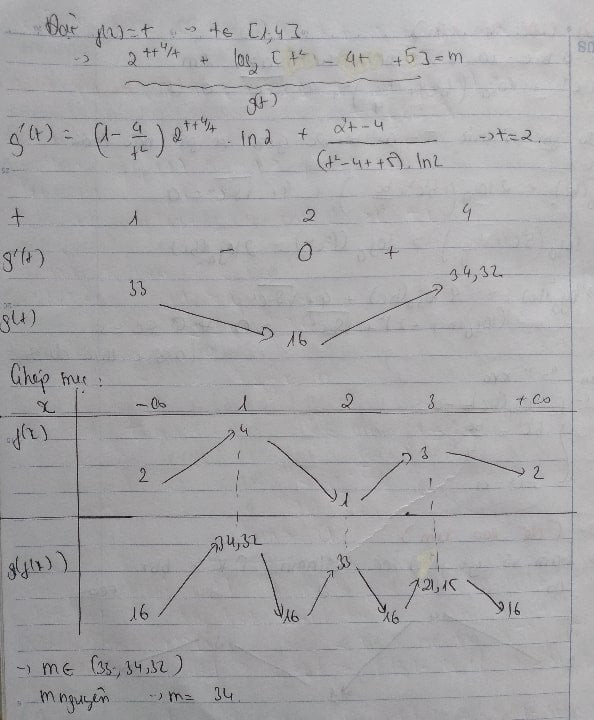 Đặt f(x) = t → t ∈ [1;4]
→ 2^{t+4/t} + log₂ [t² - 4t + 5] = m
g(t)
g'(t) = (1 - 4/t²) 2^{t+4/t} . ln2 + (2t-4)/((t²-4t+5).ln2) → t = 2.
t 1 2 4
g'(t) - 0 +
g(t) 33 16 34,32
Ghép trục :
x -∞ 1 2 3 +∞
f(x) 2 4 1 3 2
g(f(x)) 16 34,32 16 33 16 21,15 16
→ m ∈ (33; 34,32)
m nguyên → m = 34.